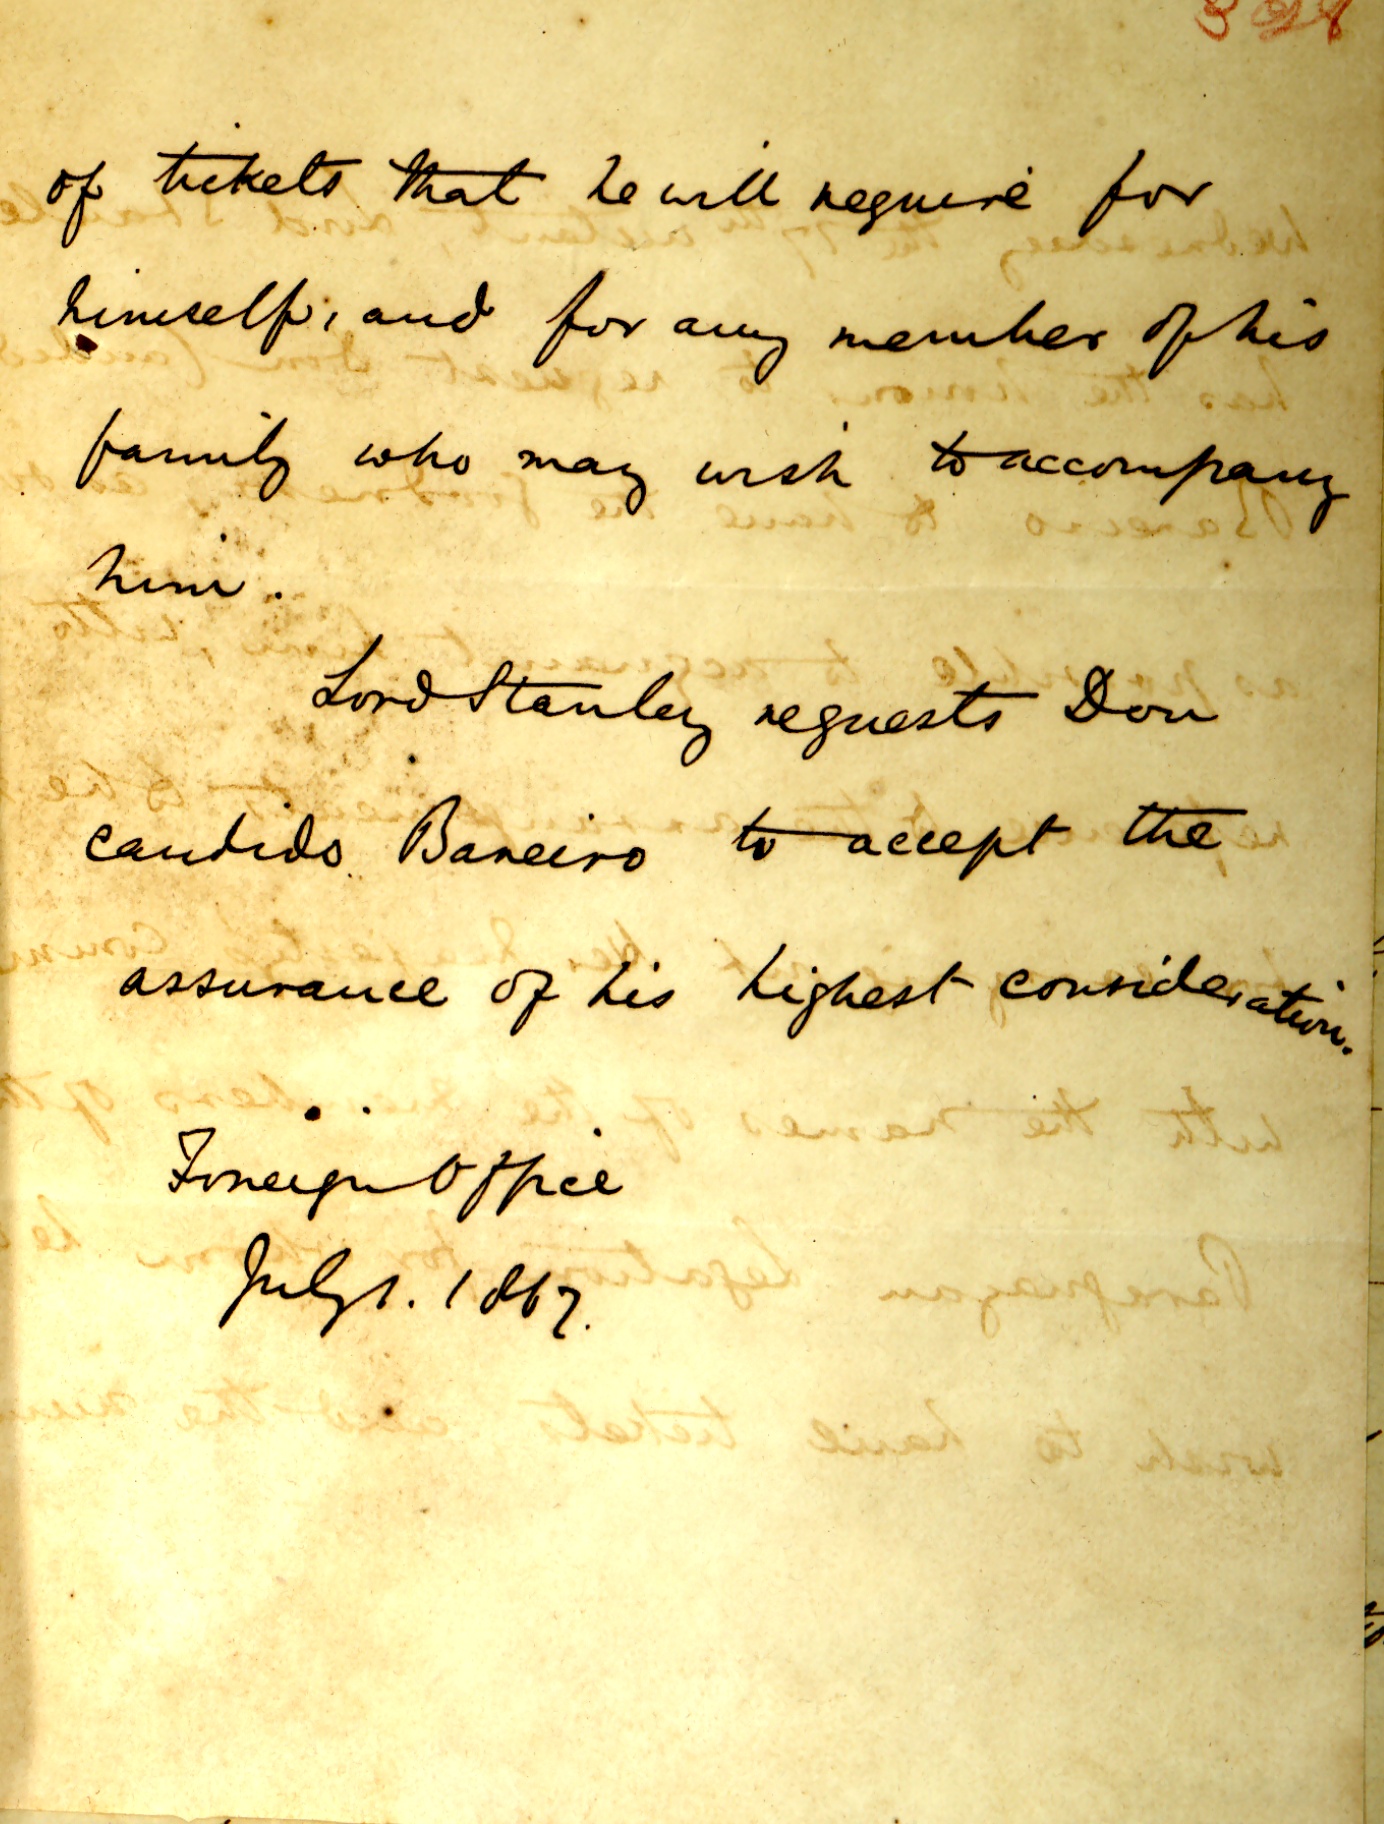 of tickets that he will require for
himself, and for any member of his
family who may wish to accompany
him.
Lord Stanley requests Don
Candido Bareiro to accept the
assurance of his highest consideration.
Foreign Office
July 1. 1867.